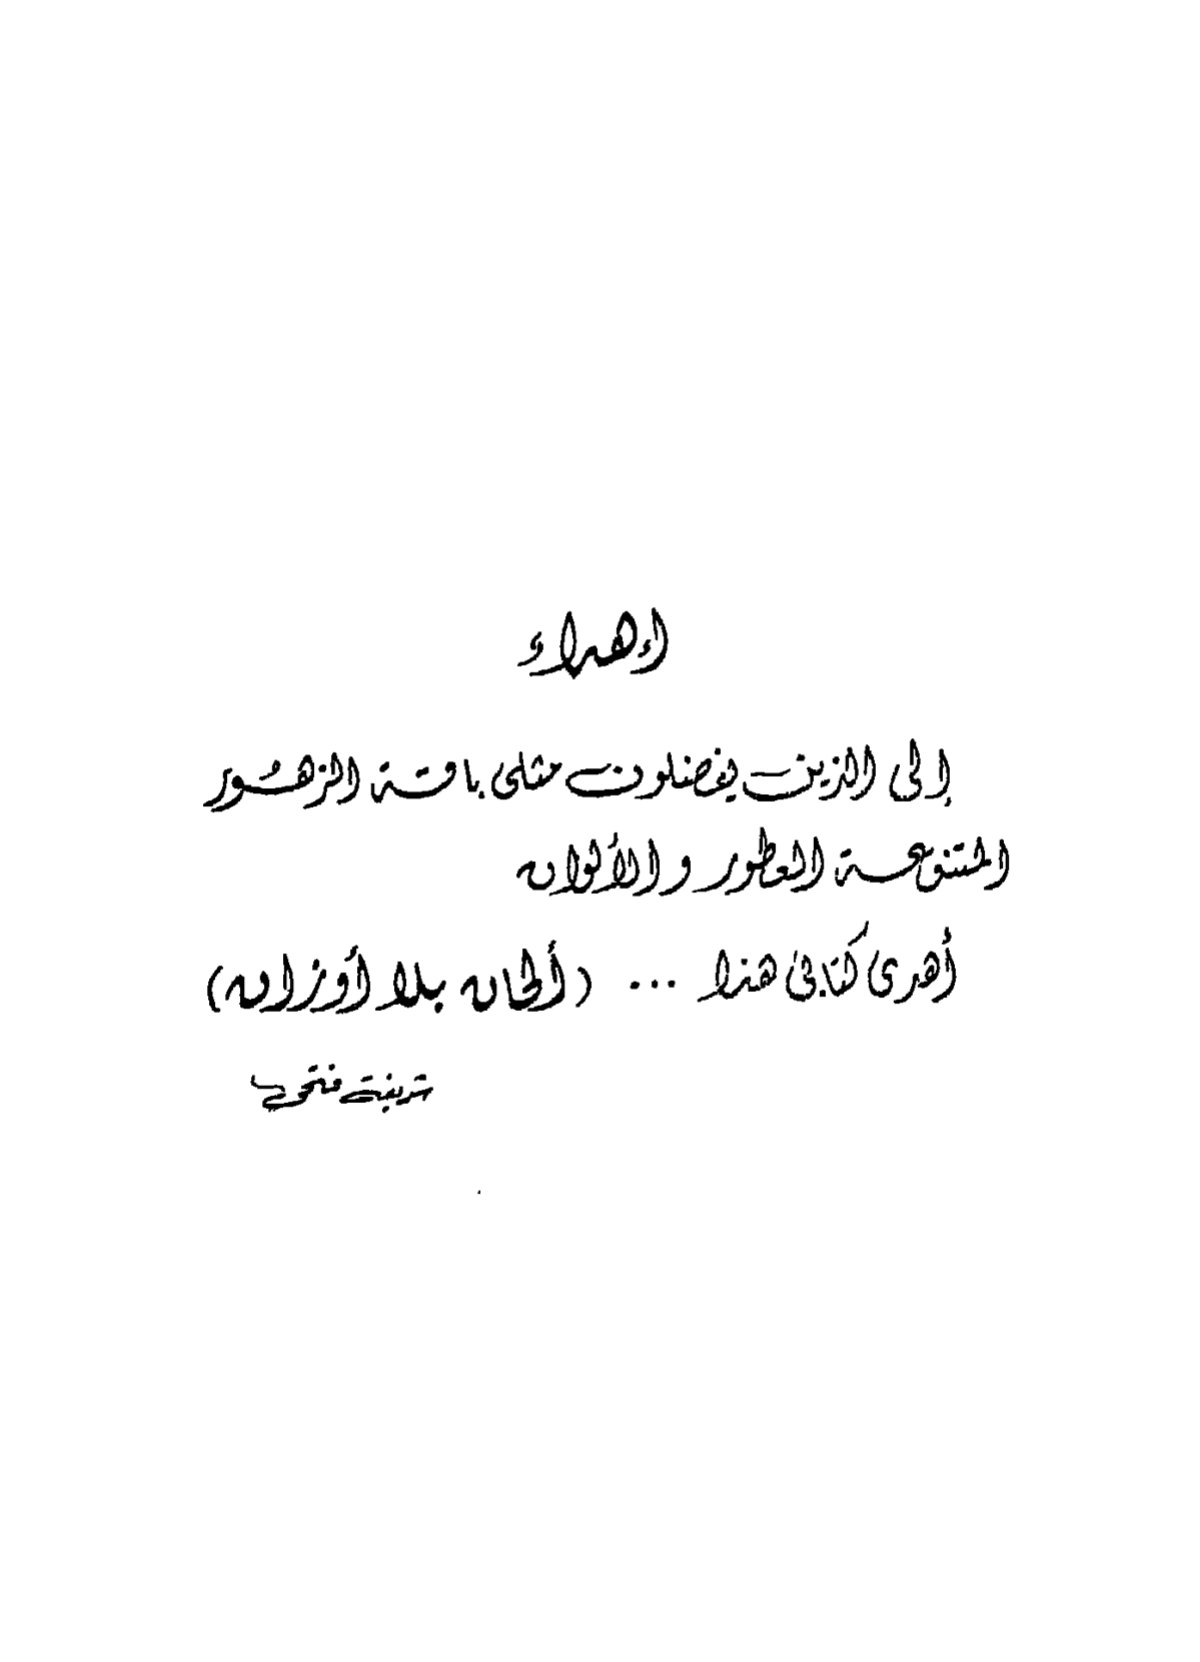 إهداء
إلى الذين يفضلون مثلى باقة الزهور
المتنوعة العطور والألوان
أهدى كتابى هذا ... (ألحان بلا أوزان)
شريفة فتحى